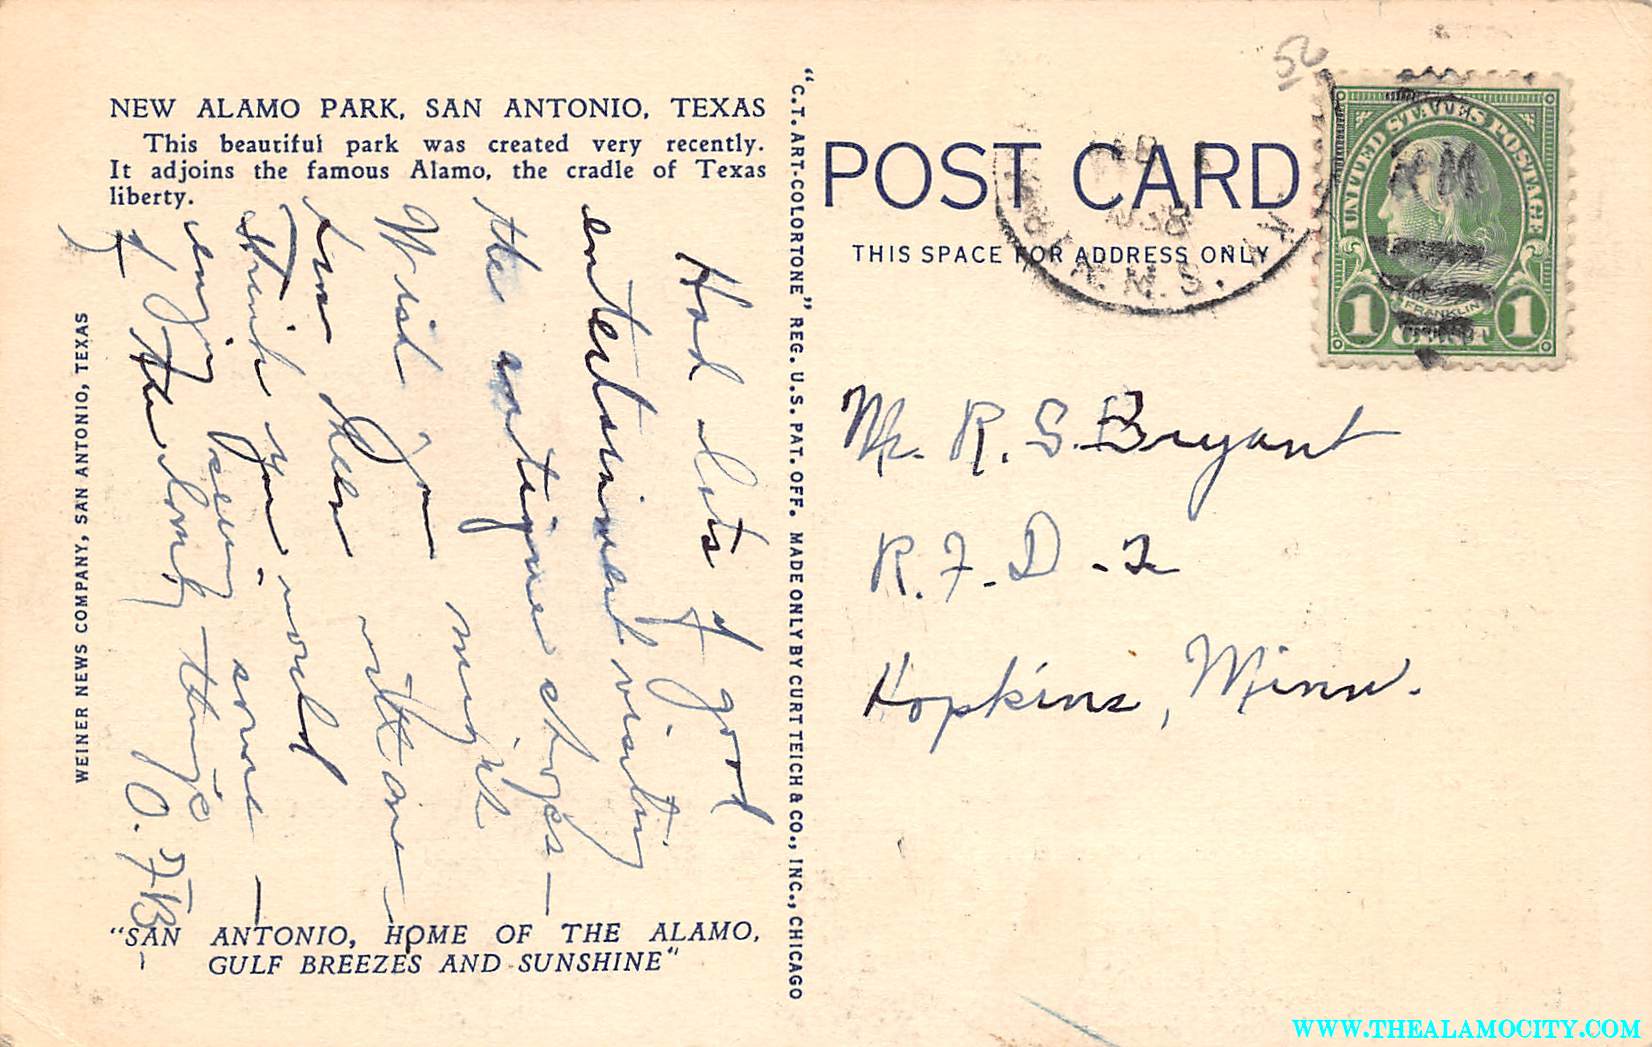 NEW ALAMO PARK, SAN ANTONIO, TEXAS
This beautiful park was created very recently.
It adjoins the famous Alamo, the cradle of Texas
liberty.
Had lots of good
entertainment visiting
the antique shops—
Wish you might
have been with me—
think you would
enjoy seeing some—
of the lovely things
O. F. B—
"SAN ANTONIO, HOME OF THE ALAMO,
GULF BREEZES AND SUNSHINE"
WEINER NEWS COMPANY, SAN ANTONIO, TEXAS
"C.T. ART-COLORTONE" REG. U.S. PAT. OFF. MADE ONLY BY CURT TEICH & CO., INC., CHICAGO
POST CARD
THIS SPACE FOR ADDRESS ONLY
52
R.M.S.
UNITED STATES POSTAGE
FRANKLIN
1 CENT 1
Mr. R. S. Bryant
R. F. D. - 2
Hopkins, Minn.
WWW.THEALAMOCITY.COM